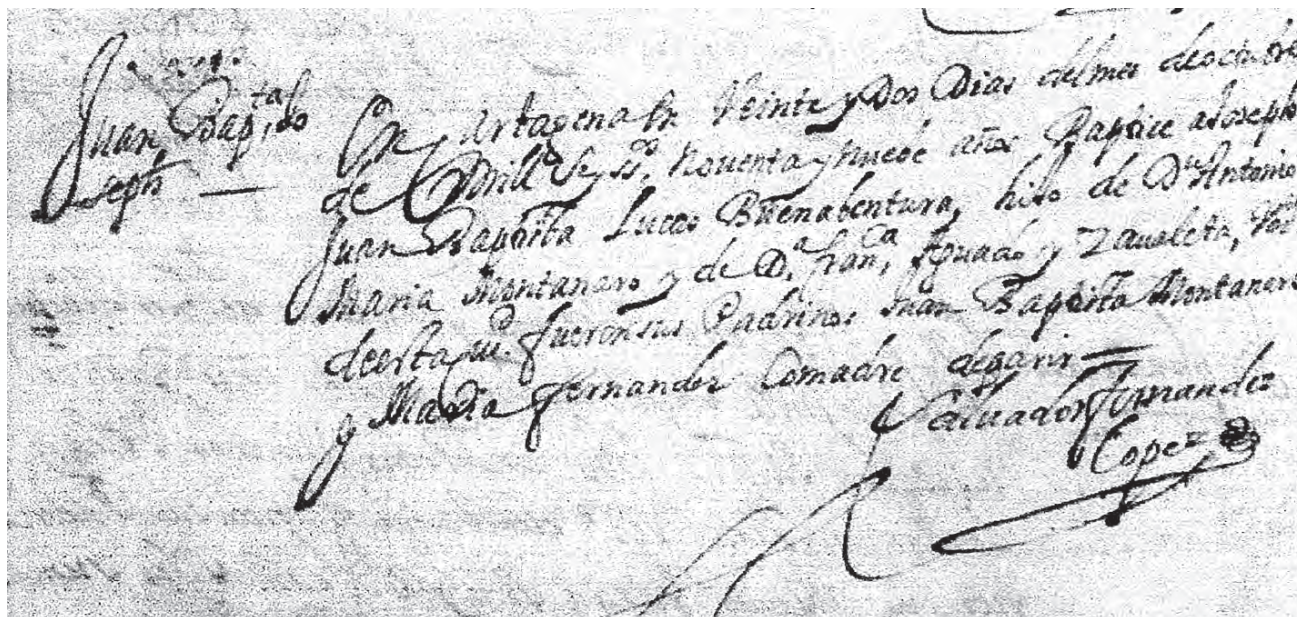 Juan Bapta Jo
seph
En Cartagena En Veinte y Dos Dias del mes de octubre
de Mill Seyss. Noventa y nuebe años Baptice a Joseph
Juan Baptista Lucas Buenabentura, hijo de Dn Antonio
Maria Montanaro y de Da. franca. Aguado y Zaualeta,
de esta fueron sus Padrinos Juan Baptista Montanaro
y Maria fernandez Comadre de parir =
Saluador fernandez
Lopez